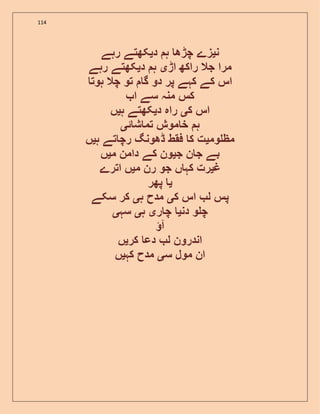 114
نیزے چڑھا ہم دیکھتے رہے
مرا جلا راکھ اڑی ہم دیکھتے رہے
اس کے کہے پر دو گام تو چلا ہوتا
کس منہ سے اب
اس کی راہ دیکھتے ہیں
ہم خاموش تماشائی
مظلومیت کا فقط ڈھونگ رچاتے ہیں
بے جان جیون کے دامن میں
غیرت کہاں جو رن میں اترے
یا پھر
پس لب اس کی مدح ہی کر سکے
چلو دنیا چاری ہی سہی
آؤ
اندرون لب دعا کریں
ان مول سی مدح کہیں